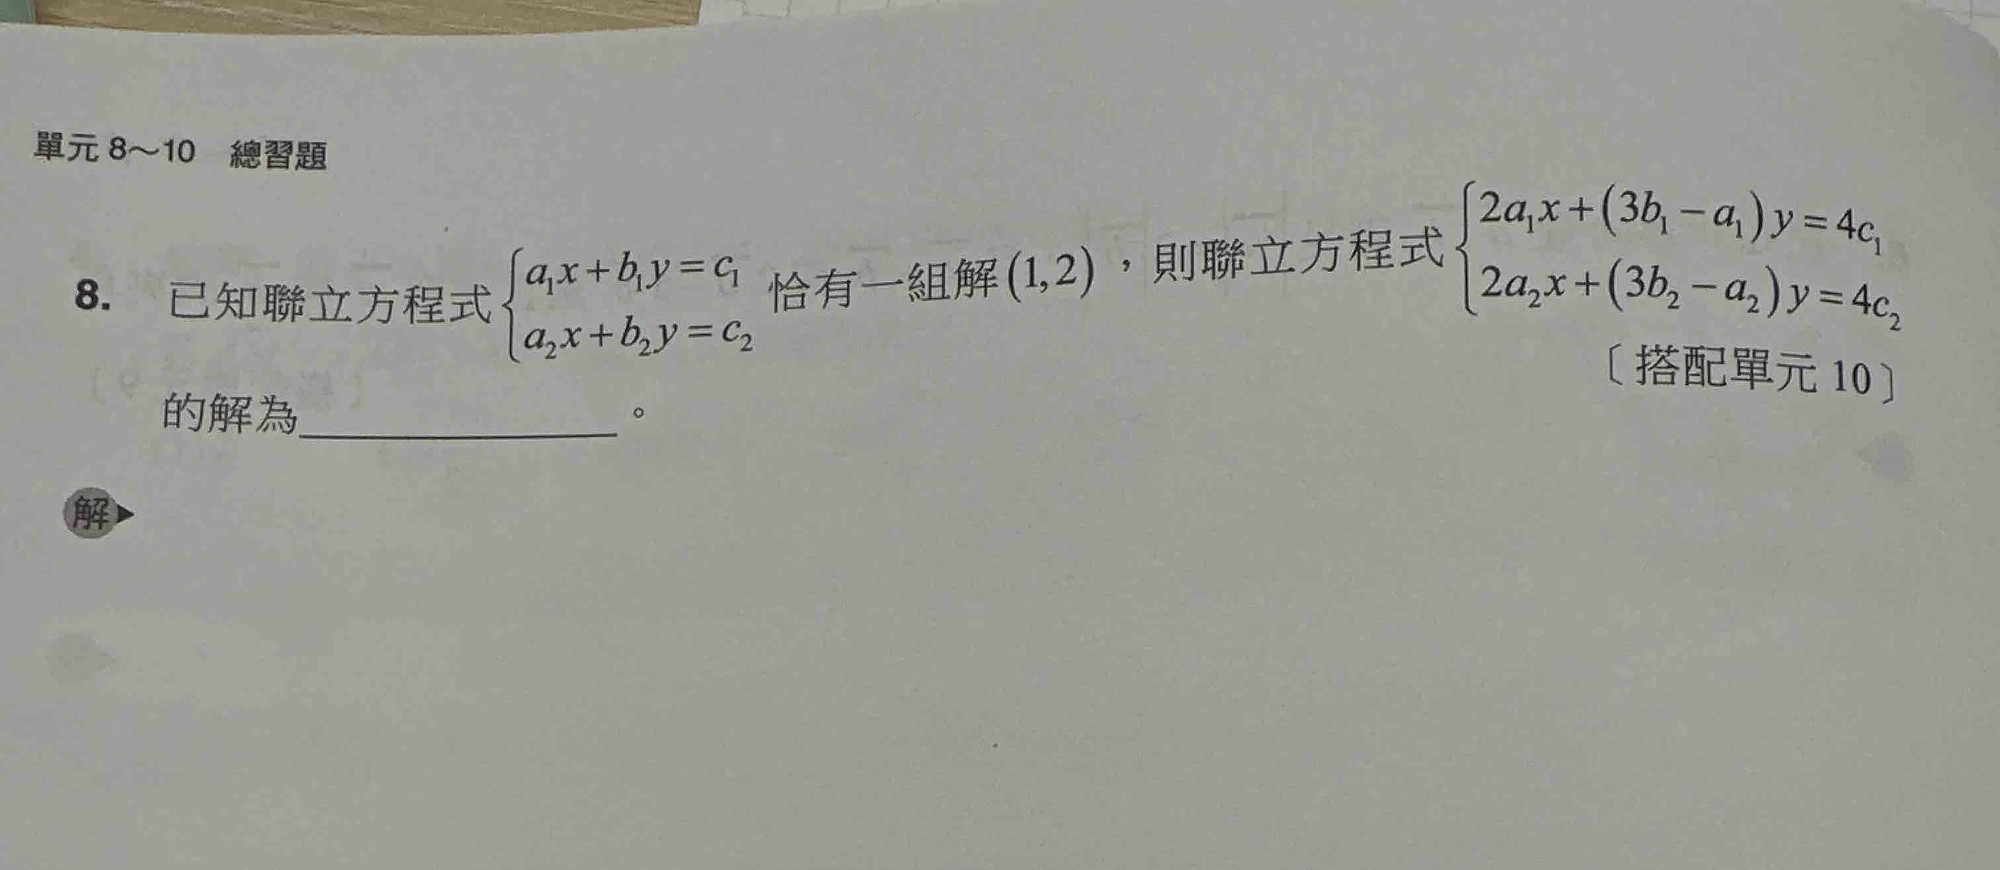 單元 8～10 總習題
8. 已知聯立方程式 { a₁x + b₁y = c₁ ; a₂x + b₂y = c₂ 恰有一組解 (1, 2)，則聯立方程式 { 2a₁x + (3b₁ − a₁)y = 4c₁ ; 2a₂x + (3b₂ − a₂)y = 4c₂
〔搭配單元 10〕
的解為____________。
解